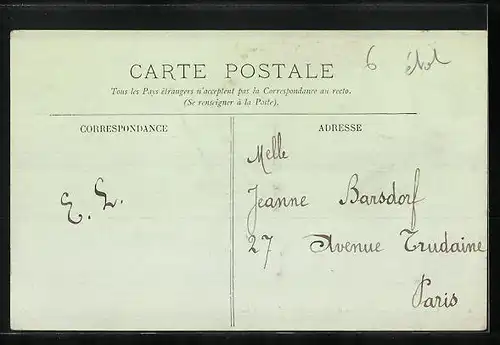 6 étol
CARTE POSTALE
Tous les Pays étrangers n'acceptent pas la Correspondance au recto.
(Se renseigner à la Poste).
CORRESPONDANCE
ADRESSE
Melle
Jeanne Barsdorf
27 Avenue Trudaine
Paris
E. L.